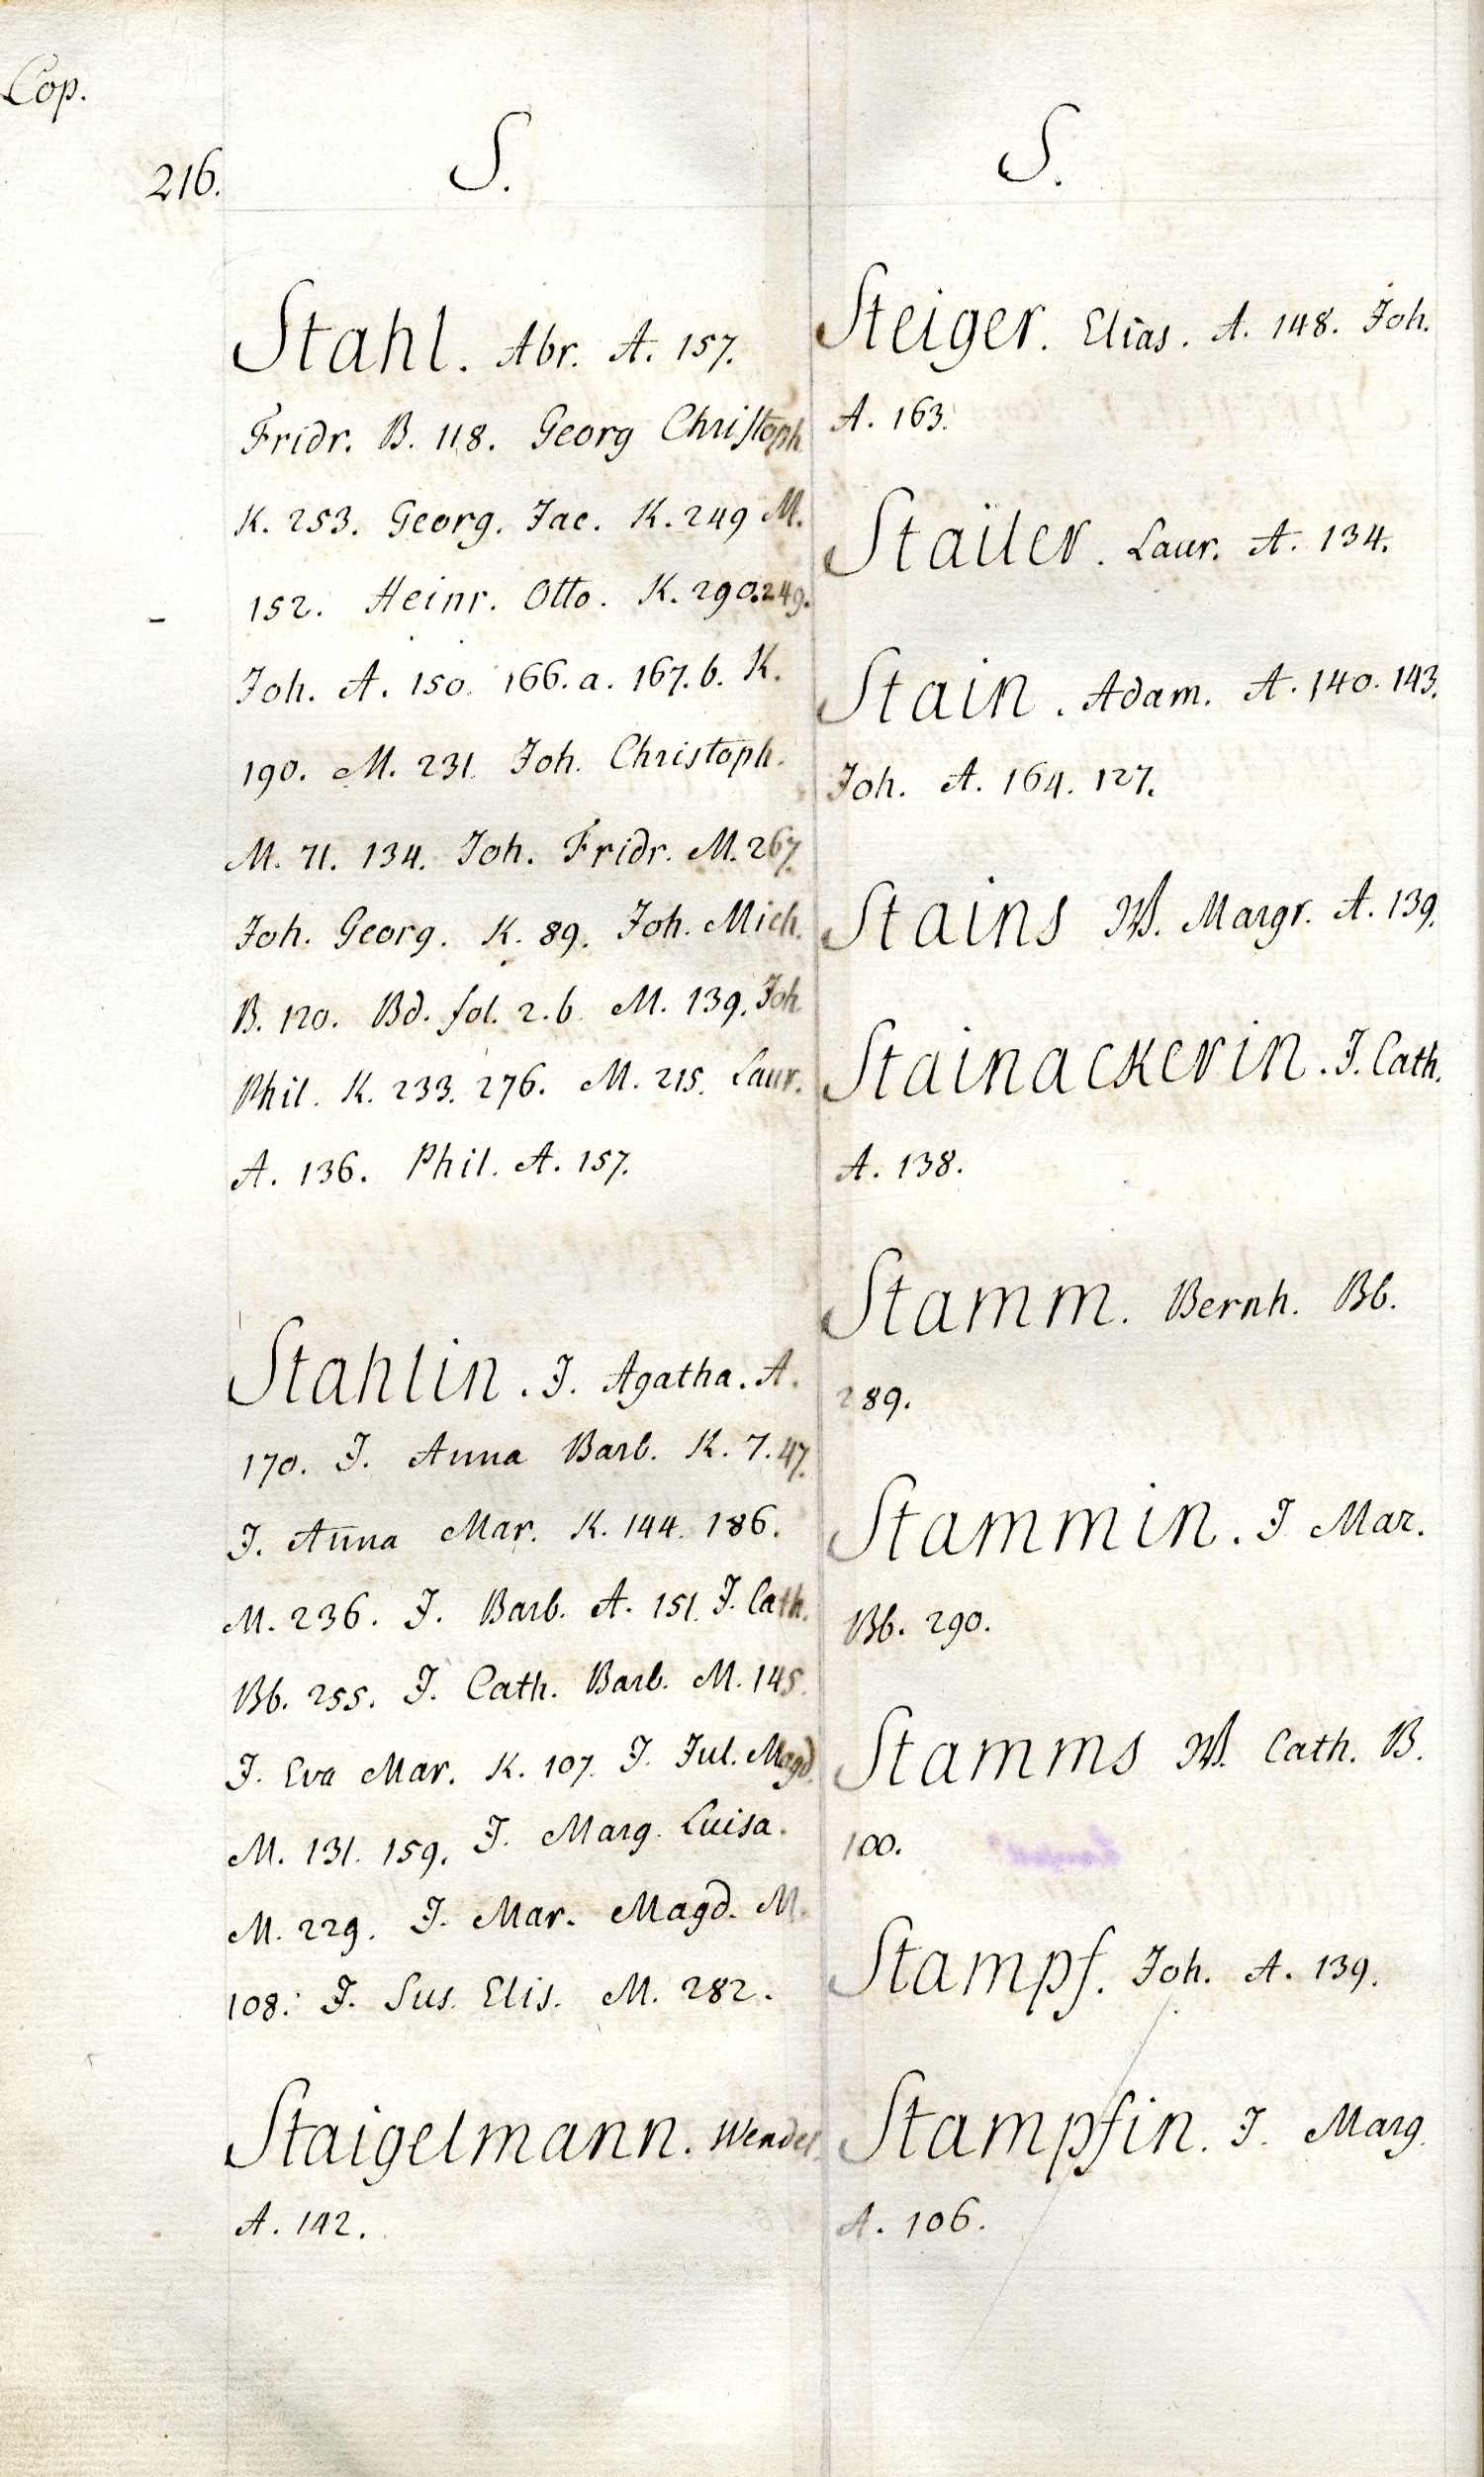 Cop.
216.
S.
Stahl. Abr. A. 157.
Fridr. B. 118. Georg Christoph
K. 253. Georg. Jac. K. 249 M.
152. Heinr. Otto. K. 290.249.
Joh. A. 150. 166.a. 167.b. K.
190. M. 231. Joh. Christoph.
M. 71. 134. Joh. Fridr. M. 267.
Joh. Georg. K. 89. Joh. Mich.
B. 120. Bd. fol. 2.b. M. 139. Joh
Phil. K. 233. 276. M. 215. Laur.
A. 136. Phil. A. 157.
Stahlin. J. Agatha. A.
170. J. Anna Barb. K. 7. 47.
J. Anna Mar. K. 144. 186.
M. 236. J. Barb. A. 151. J. Cath.
Bb. 255. J. Cath. Barb. M. 145.
J. Eva Mar. K. 107. J. Jul. Magd.
M. 131. 159. J. Marg. Luisa.
M. 229. J. Mar. Magd. M.
108. J. Sus. Elis. M. 282.
Staigelmann. Wendel.
A. 142.
S.
Steiger. Elias. A. 148. Joh.
A. 163.
Stailer. Laur. A. 134.
Stain. Adam. A. 140. 143.
Joh. A. 164. 127.
Stains W. Margr. A. 139.
Stainackerin. J. Cath.
A. 138.
Stamm. Bernh. Bb.
289.
Stammin. J Mar.
Bb. 290.
Stamms W. Cath. B.
100.
Stampf. Joh. A. 139.
Stampfin. J. Marg.
A. 106.